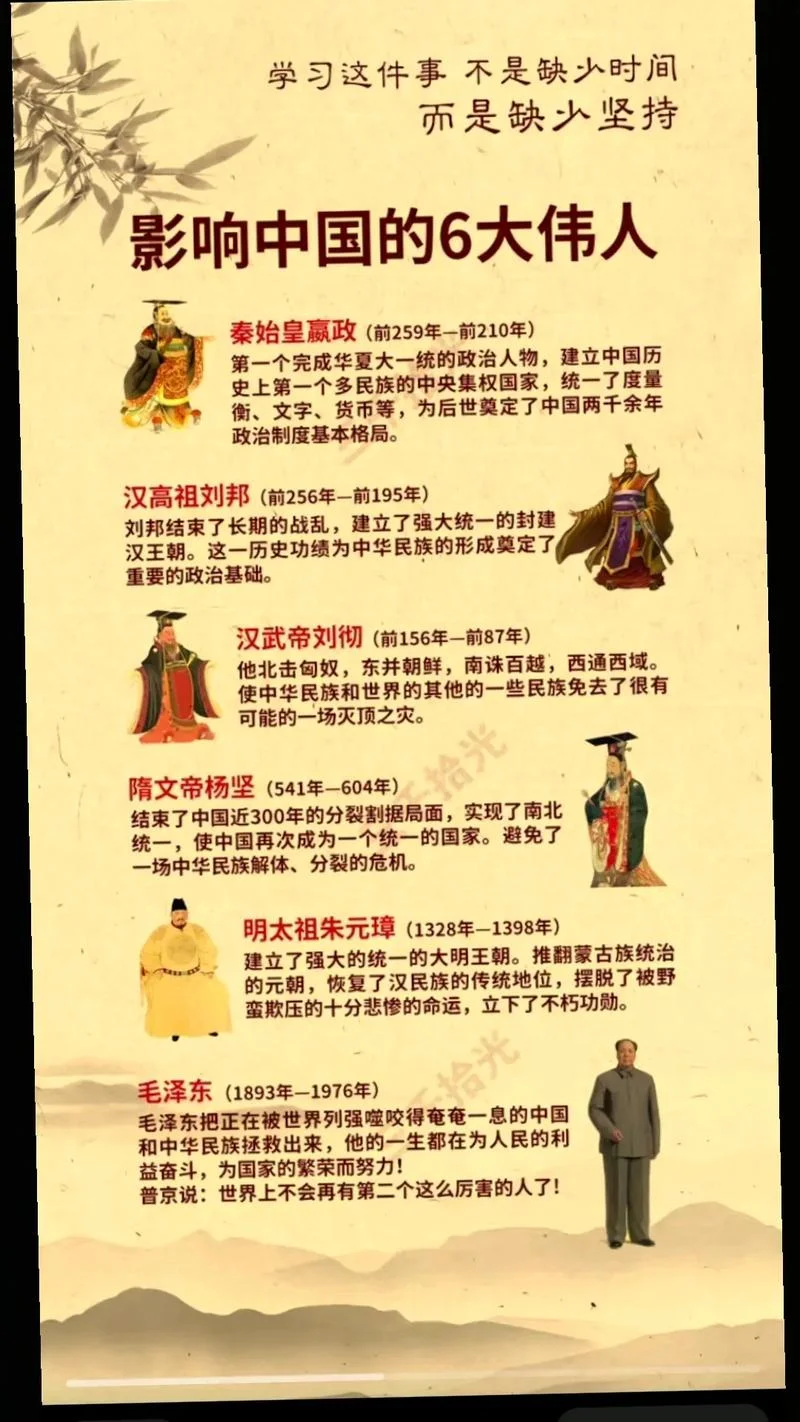 学习这件事 不是缺少时间
而是缺少坚持
影响中国的6大伟人
秦始皇嬴政（前259年—前210年）
第一个完成华夏大一统的政治人物，建立中国历
史上第一个多民族的中央集权国家，统一了度量
衡、文字、货币等，为后世奠定了中国两千余年
政治制度基本格局。
汉高祖刘邦（前256年—前195年）
刘邦结束了长期的战乱，建立了强大统一的封建
汉王朝。这一历史功绩为中华民族的形成奠定了
重要的政治基础。
汉武帝刘彻（前156年—前87年）
他北击匈奴，东并朝鲜，南诛百越，西通西域。
使中华民族和世界的其他的一些民族免去了很有
可能的一场灭顶之灾。
隋文帝杨坚（541年—604年）
结束了中国近300年的分裂割据局面，实现了南北
统一，使中国再次成为一个统一的国家。避免了
一场中华民族解体、分裂的危机。
明太祖朱元璋（1328年—1398年）
建立了强大的统一的大明王朝。推翻蒙古族统治
的元朝，恢复了汉民族的传统地位，摆脱了被野
蛮欺压的十分悲惨的命运，立下了不朽功勋。
毛泽东（1893年—1976年）
毛泽东把正在被世界列强噬咬得奄奄一息的中国
和中华民族拯救出来，他的一生都在为人民的利
益奋斗，为国家的繁荣而努力！
普京说：世界上不会再有第二个这么厉害的人了！